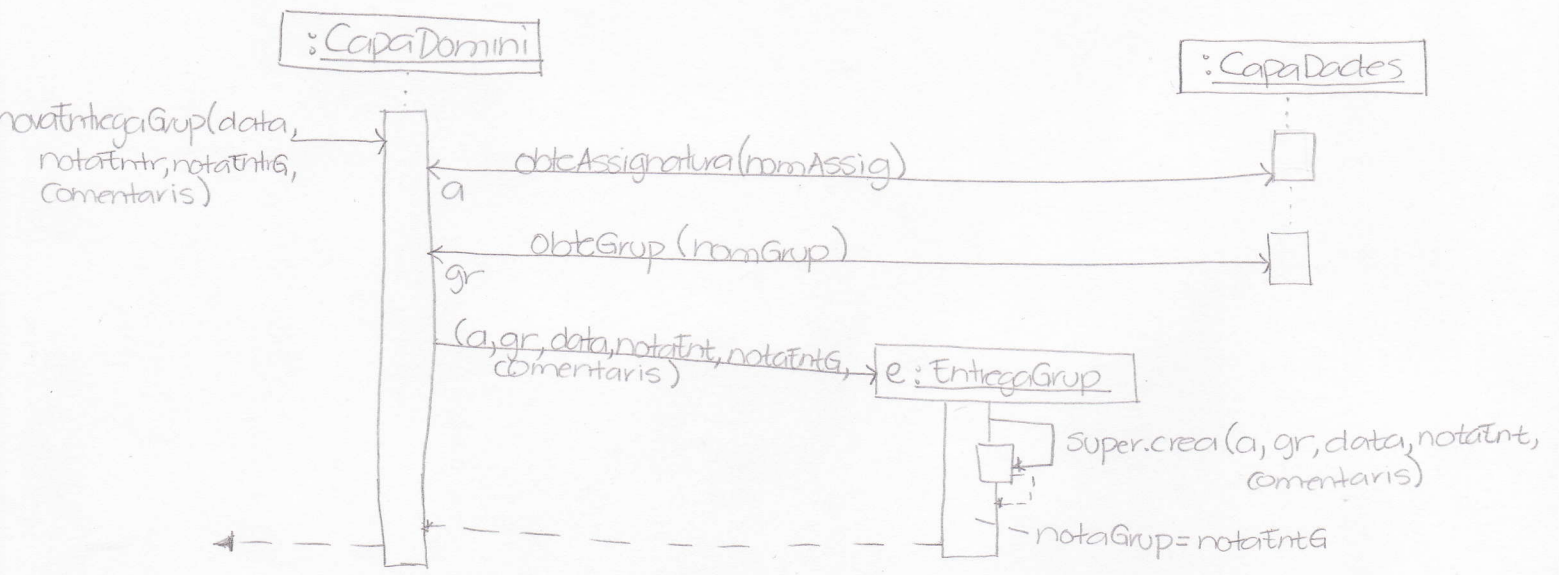 :CapaDomini
:CapaDades
novaEntregaGrup(data,
notaEntr, notaEntrG,
comentaris)
obteAssignatura(nomAssig)
a
obteGrup(nomGrup)
gr
(a, gr, data, notaEnt, notaEntG,
comentaris)
e:EntregaGrup
super.crea(a, gr, data, notaEnt,
comentaris)
notaGrup=notaEntG